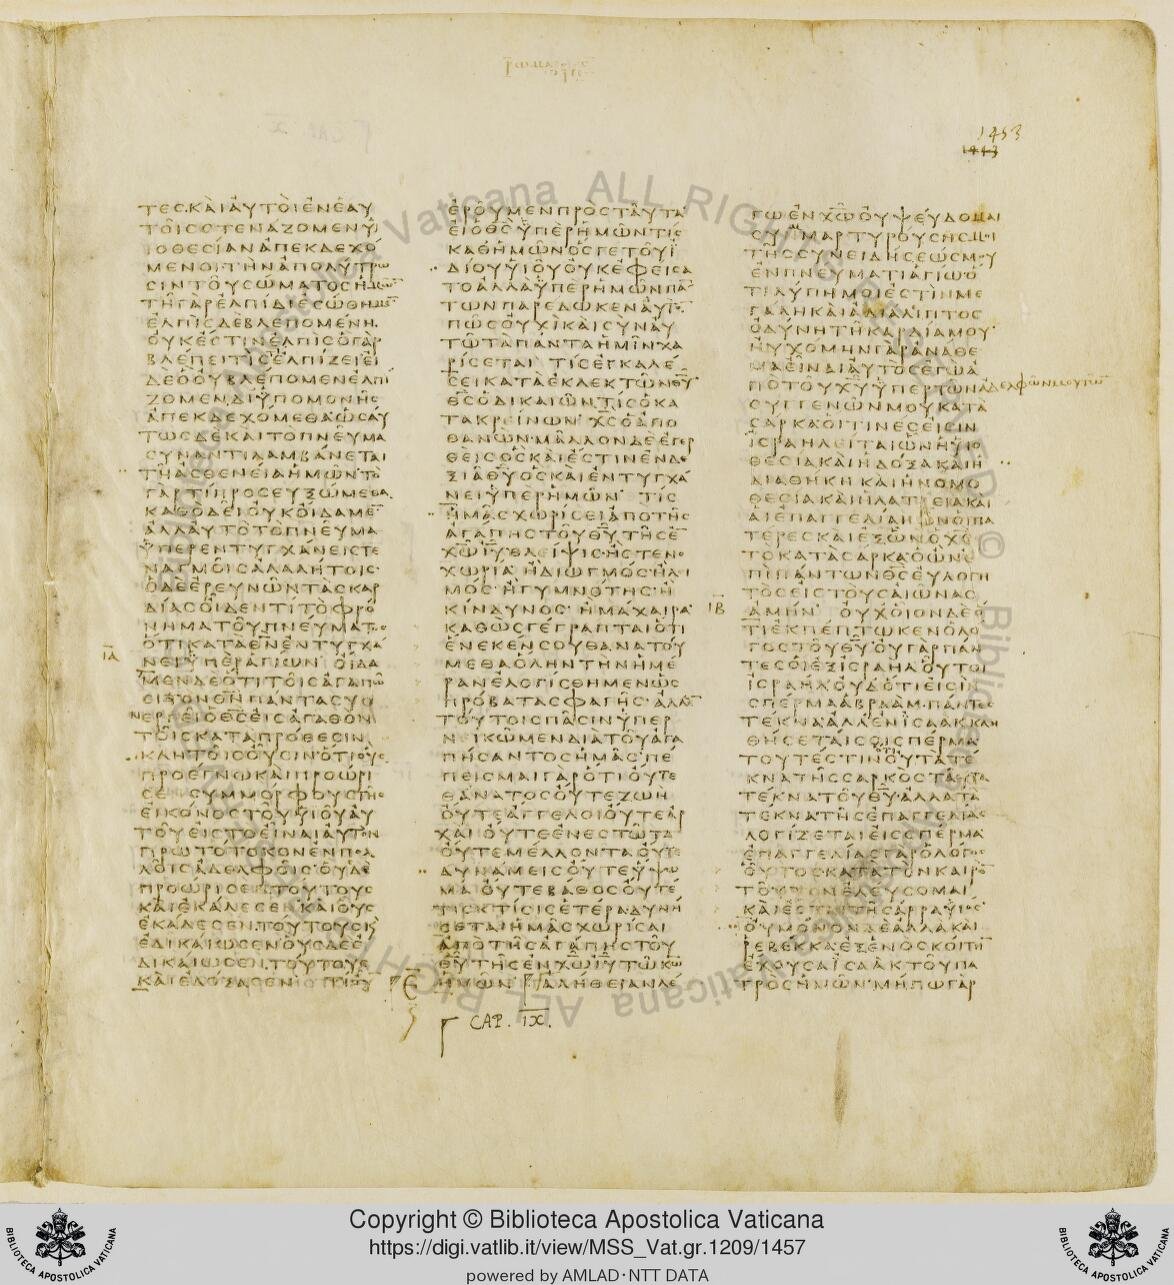 1453
1443
ΤΕΣ ΚΑΙ ΑΥΤΟΙ ΕΝ ΕΑΥ
ΤΟΙΣ ΣΤΕΝΑΖΟΜΕΝ ΥΙ
ΟΘΕΣΙΑΝ ΑΠΕΚΔΕΧΟ
ΜΕΝΟΙ ΤΗΝ ΑΠΟΛΥΤΡΩ
ΣΙΝ ΤΟΥ ΣΩΜΑΤΟΣ ΗΜΩ̅
ΤΗ ΓΑΡ ΕΛΠΙΔΙ ΕΣΩΘΗΜΕ̅
ΕΛΠΙΣ ΔΕ ΒΛΕΠΟΜΕΝΗ
ΟΥΚ ΕΣΤΙΝ ΕΛΠΙΣ Ο ΓΑΡ
ΒΛΕΠΕΙ ΤΙΣ ΕΛΠΙΖΕΙ ΕΙ
ΔΕ Ο ΟΥ ΒΛΕΠΟΜΕΝ ΕΛΠΙ
ΖΟΜΕΝ ΔΙ ΥΠΟΜΟΝΗΣ
ΑΠΕΚΔΕΧΟΜΕΘΑ ΩΣΑΥ
ΤΩΣ ΔΕ ΚΑΙ ΤΟ ΠΝΕΥΜΑ
ΣΥΝΑΝΤΙΛΑΜΒΑΝΕΤΑΙ
ΤΗ ΑΣΘΕΝΕΙΑ ΗΜΩΝ ΤΟ
ΓΑΡ ΤΙ ΠΡΟΣΕΥΞΩΜΕΘΑ
ΚΑΘΟ ΔΕΙ ΟΥΚ ΟΙΔΑΜΕ̅
ΑΛΛΑ ΑΥΤΟ ΤΟ ΠΝΕΥΜΑ
ΥΠΕΡΕΝΤΥΓΧΑΝΕΙ ΣΤΕ
ΝΑΓΜΟΙΣ ΑΛΑΛΗΤΟΙΣ
Ο ΔΕ ΕΡΕΥΝΩΝ ΤΑΣ ΚΑΡ
ΔΙΑΣ ΟΙΔΕΝ ΤΙ ΤΟ ΦΡΟ
ΝΗΜΑ ΤΟΥ ΠΝΕΥΜΑΤΟΣ
ΟΤΙ ΚΑΤΑ Θ̅Ν̅ ΕΝΤΥΓΧΑ
ΙΑ
ΝΕΙ ΥΠΕΡ ΑΓΙΩΝ ΟΙΔΑ
ΜΕΝ ΔΕ ΟΤΙ ΤΟΙΣ ΑΓΑΠΩ
ΣΙ ΤΟΝ Θ̅Ν̅ ΠΑΝΤΑ ΣΥΝ
ΕΡΓΕΙ Ο Θ̅Σ̅ ΕΙΣ ΑΓΑΘΟΝ
ΤΟΙΣ ΚΑΤΑ ΠΡΟΘΕΣΙΝ
ΚΛΗΤΟΙΣ ΟΥΣΙΝ ΟΤΙ ΟΥΣ
ΠΡΟΕΓΝΩ ΚΑΙ ΠΡΟΩΡΙ
ΣΕΝ ΣΥΜΜΟΡΦΟΥΣ ΤΗΣ
ΕΙΚΟΝΟΣ ΤΟΥ ΥΙΟΥ ΑΥ
ΤΟΥ ΕΙΣ ΤΟ ΕΙΝΑΙ ΑΥΤΟΝ
ΠΡΩΤΟΤΟΚΟΝ ΕΝ ΠΟΛ
ΛΟΙΣ ΑΔΕΛΦΟΙΣ ΟΥΣ ΔΕ
ΠΡΟΩΡΙΣΕΝ ΤΟΥΤΟΥΣ
ΚΑΙ ΕΚΑΛΕΣΕΝ ΚΑΙ ΟΥΣ
ΕΚΑΛΕΣΕΝ ΤΟΥΤΟΥΣ Κ
ΕΔΙΚΑΙΩΣΕΝ ΟΥΣ ΔΕ Ε
ΔΙΚΑΙΩΣΕΝ ΤΟΥΤΟΥΣ
ΚΑΙ ΕΔΟΞΑΣΕΝ ΤΙ ΟΥΝ
ΕΡΟΥΜΕΝ ΠΡΟΣ ΤΑΥΤΑ
ΕΙ Ο Θ̅Σ̅ ΥΠΕΡ ΗΜΩΝ ΤΙΣ
ΚΑΘ ΗΜΩΝ ΟΣ ΓΕ ΤΟΥ Ι
ΔΙΟΥ ΥΙΟΥ ΟΥΚ ΕΦΕΙΣΑ
ΤΟ ΑΛΛΑ ΥΠΕΡ ΗΜΩΝ ΠΑ̅
ΤΩΝ ΠΑΡΕΔΩΚΕΝ ΑΥΤΟ̅
ΠΩΣ ΟΥΧΙ ΚΑΙ ΣΥΝ ΑΥ
ΤΩ ΤΑ ΠΑΝΤΑ ΗΜΙΝ ΧΑ
ΡΙΣΕΤΑΙ ΤΙΣ ΕΓΚΑΛΕ
ΣΕΙ ΚΑΤΑ ΕΚΛΕΚΤΩΝ Θ̅Υ̅
Θ̅Σ̅ Ο ΔΙΚΑΙΩΝ ΤΙΣ Ο ΚΑ
ΤΑΚΡΕΙΝΩΝ Χ̅Σ̅ Ο ΑΠΟ
ΘΑΝΩΝ ΜΑΛΛΟΝ ΔΕ ΕΓΕΡ
ΘΕΙΣ ΟΣ ΚΑΙ ΕΣΤΙΝ ΕΝ ΔΕ
ΞΙΑ Θ̅Υ̅ ΟΣ ΚΑΙ ΕΝΤΥΓΧΑ
ΝΕΙ ΥΠΕΡ ΗΜΩΝ ΤΙΣ
ΗΜΑΣ ΧΩΡΙΣΕΙ ΑΠΟ ΤΗΣ
ΑΓΑΠΗΣ ΤΟΥ Θ̅Υ̅ ΤΗΣ Ε̅
Χ̅Ω̅ Ι̅Υ̅ ΘΛΕΙΨΙΣ Η ΣΤΕΝΟ
ΧΩΡΙΑ Η ΔΙΩΓΜΟΣ Η ΛΙ
ΜΟΣ Η ΓΥΜΝΟΤΗΣ Η
ΚΙΝΔΥΝΟΣ Η ΜΑΧΑΙΡΑ
ΚΑΘΩΣ ΓΕΓΡΑΠΤΑΙ ΟΤΙ
ΕΝΕΚΕΝ ΣΟΥ ΘΑΝΑΤΟΥ
ΜΕΘΑ ΟΛΗΝ ΤΗΝ ΗΜΕ
ΡΑΝ ΕΛΟΓΙΣΘΗΜΕΝ ΩΣ
ΠΡΟΒΑΤΑ ΣΦΑΓΗΣ ΑΛΛ Ε̅
ΤΟΥΤΟΙΣ ΠΑΣΙΝ ΥΠΕΡ
ΝΕΙΚΩΜΕΝ ΔΙΑ ΤΟΥ ΑΓΑ
ΠΗΣΑΝΤΟΣ ΗΜΑΣ ΠΕ
ΠΕΙΣΜΑΙ ΓΑΡ ΟΤΙ ΟΥΤΕ
ΘΑΝΑΤΟΣ ΟΥΤΕ ΖΩΗ
ΟΥΤΕ ΑΓΓΕΛΟΙ ΟΥΤΕ ΑΡ
ΧΑΙ ΟΥΤΕ ΕΝΕΣΤΩΤΑ
ΟΥΤΕ ΜΕΛΛΟΝΤΑ ΟΥΤΕ
ΔΥΝΑΜΕΙΣ ΟΥΤΕ ΥΨΩ
ΜΑ ΟΥΤΕ ΒΑΘΟΣ ΟΥΤΕ
ΤΙΣ ΚΤΙΣΙΣ ΕΤΕΡΑ ΔΥΝΗ
ΣΕΤΑΙ ΗΜΑΣ ΧΩΡΙΣΑΙ
ΑΠΟ ΤΗΣ ΑΓΑΠΗΣ ΤΟΥ
Θ̅Υ̅ ΤΗΣ ΕΝ Χ̅Ω̅ Ι̅Υ̅ ΤΩ Κ̅Ω̅
Ε
ΗΜΩΝ ΑΛΗΘΕΙΑΝ ΛΕ
CAP. IX.
ΓΩ ΕΝ Χ̅Ω̅ ΟΥ ΨΕΥΔΟΜΑΙ
ΣΥΜΜΑΡΤΥΡΟΥΣΗΣ ΜΟΙ
ΤΗΣ ΣΥΝΕΙΔΗΣΕΩΣ ΜΟΥ
ΕΝ ΠΝΕΥΜΑΤΙ ΑΓΙΩ Ο
ΤΙ ΛΥΠΗ ΜΟΙ ΕΣΤΙΝ ΜΕ
ΓΑΛΗ ΚΑΙ ΑΔΙΑΛΙΠΤΟΣ
ΟΔΥΝΗ ΤΗ ΚΑΡΔΙΑ ΜΟΥ
ΗΥΧΟΜΗΝ ΓΑΡ ΑΝΑΘΕ
ΜΑ ΕΙΝΑΙ ΑΥΤΟΣ ΕΓΩ Α
ΠΟ ΤΟΥ Χ̅Υ̅ ΥΠΕΡ ΤΩΝ ἀδελφῶν μου τῶν
ΣΥΓΓΕΝΩΝ ΜΟΥ ΚΑΤΑ
ΣΑΡΚΑ ΟΙΤΙΝΕΣ ΕΙΣΙΝ
ΙΣΡΑΗΛΕΙΤΑΙ ΩΝ Η ΥΙΟ
ΘΕΣΙΑ ΚΑΙ Η ΔΟΞΑ ΚΑΙ Η
ΔΙΑΘΗΚΗ ΚΑΙ Η ΝΟΜΟ
ΘΕΣΙΑ ΚΑΙ Η ΛΑΤΡΕΙΑ ΚΑΙ
ΑΙ ΕΠΑΓΓΕΛΙΑΙ ΩΝ ΟΙ ΠΑ
ΤΕΡΕΣ ΚΑΙ ΕΞ ΩΝ Ο Χ̅Σ̅
ΤΟ ΚΑΤΑ ΣΑΡΚΑ Ο ΩΝ Ε
ΠΙ ΠΑΝΤΩΝ Θ̅Σ̅ ΕΥΛΟΓΗ
ΤΟΣ ΕΙΣ ΤΟΥΣ ΑΙΩΝΑΣ
ΙΒ
ΑΜΗΝ ΟΥΧ ΟΙΟΝ ΔΕ Ο
ΤΙ ΕΚΠΕΠΤΩΚΕΝ Ο ΛΟ
ΓΟΣ ΤΟΥ Θ̅Υ̅ ΟΥ ΓΑΡ ΠΑΝ
ΤΕΣ ΟΙ ΕΞ ΙΣΡΑΗΛ ΟΥΤΟΙ
ΙΣΡΑΗΛ ΟΥΔ ΟΤΙ ΕΙΣΙΝ
ΣΠΕΡΜΑ ΑΒΡΑΑΜ ΠΑΝΤΕΣ
ΤΕΚΝΑ ΑΛΛ ΕΝ ΙΣΑΑΚ ΚΛΗ
ΘΗΣΕΤΑΙ ΣΟΙ ΣΠΕΡΜΑ
ΤΟΥΤΕΣΤΙΝ ΟΤΙ ΟΥ ΤΑ ΤΕ
ΚΝΑ ΤΗΣ ΣΑΡΚΟΣ ΤΑΥΤΑ
ΤΕΚΝΑ ΤΟΥ Θ̅Υ̅ ΑΛΛΑ ΤΑ
ΤΕΚΝΑ ΤΗΣ ΕΠΑΓΓΕΛΙΑΣ
ΛΟΓΙΖΕΤΑΙ ΕΙΣ ΣΠΕΡΜΑ
ΕΠΑΓΓΕΛΙΑΣ ΓΑΡ Ο ΛΟΓΟΣ
ΟΥΤΟΣ ΚΑΤΑ ΤΟΝ ΚΑΙΡΟ̅
ΤΟΥΤΟΝ ΕΛΕΥΣΟΜΑΙ
ΚΑΙ ΕΣΤΑΙ ΤΗ ΣΑΡΡΑ ΥΙΟΣ
ΟΥ ΜΟΝΟΝ ΔΕ ΑΛΛΑ ΚΑΙ
ΡΕΒΕΚΚΑ ΕΞ ΕΝΟΣ ΚΟΙΤΗ̅
ΕΧΟΥΣΑ ΙΣΑΑΚ ΤΟΥ ΠΑ
ΤΡΟΣ ΗΜΩΝ ΜΗΠΩ ΓΑΡ
Copyright © Biblioteca Apostolica Vaticana
https://digi.vatlib.it/view/MSS_Vat.gr.1209/1457
powered by AMLAD·NTT DATA
BIBLIOTECA APOSTOLICA VATICANA
BIBLIOTECA APOSTOLICA VATICANA